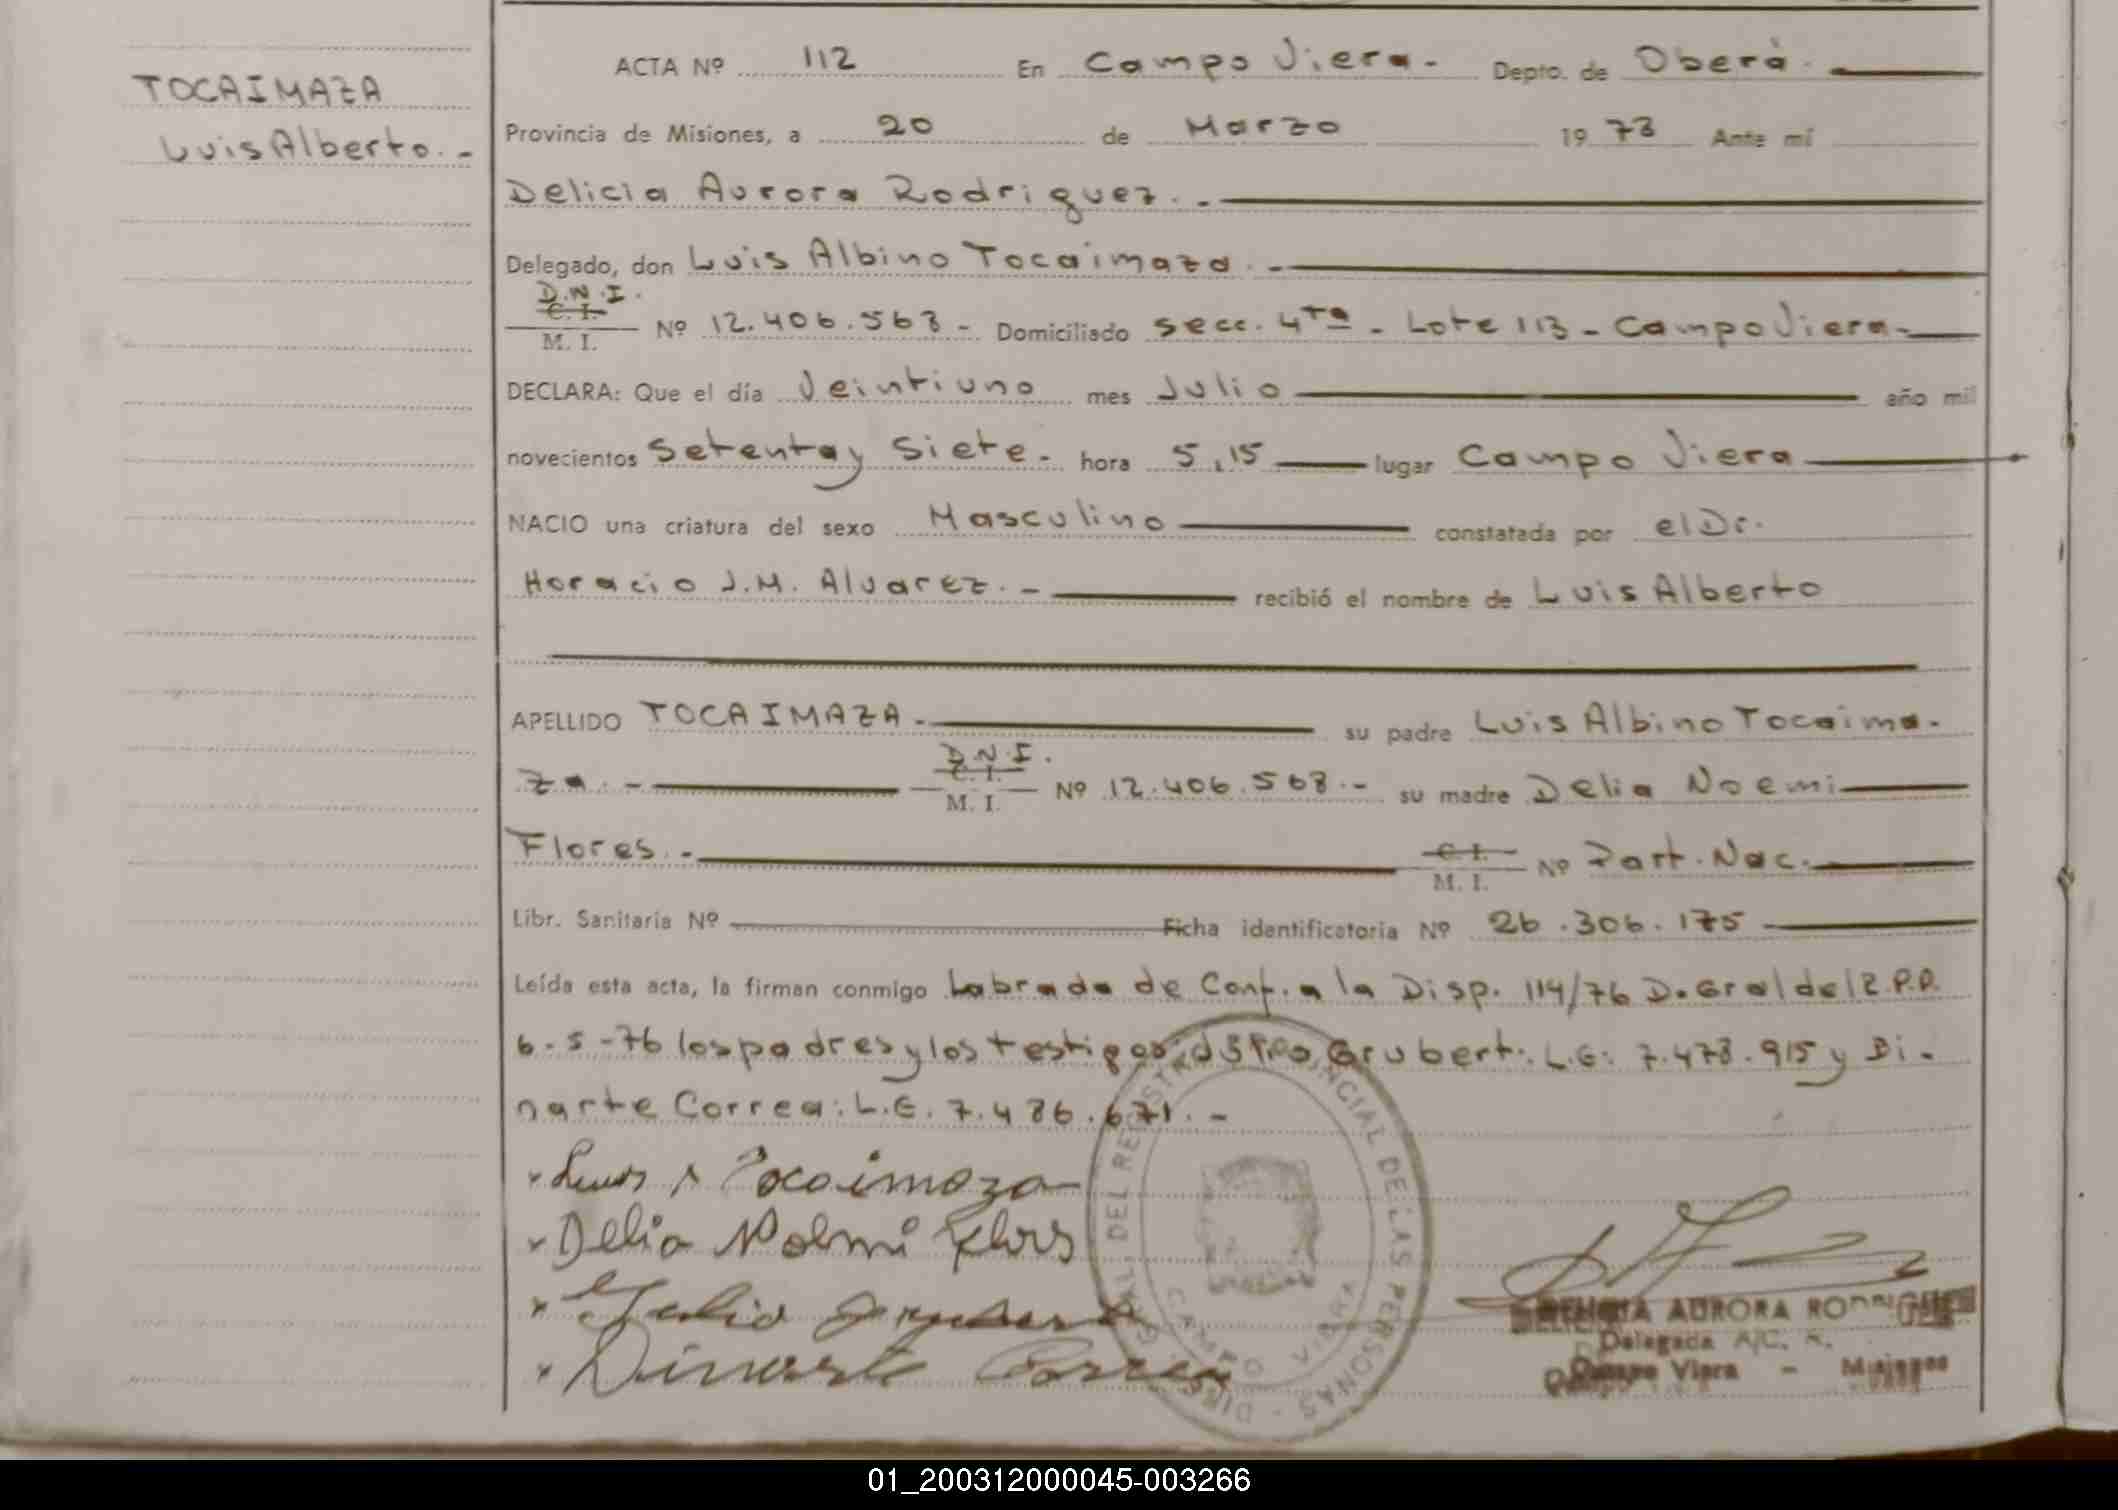 TOCAIMAZA
Luis Alberto.-
ACTA Nº 112 En Campo Viera.- Depto. de Oberá.
Provincia de Misiones, a 20 de Marzo 1978 Ante mí
Delicia Aurora Rodriguez.-
Delegado, don Luis Albino Tocaimaza.-
D.N.I.
C. I.
M. I. Nº 12.406.568- Domiciliado Secc. 4ta - Lote 113 - Campo Viera-
DECLARA: Que el día Veintiuno mes Julio año mil
novecientos Setenta y Siete- hora 5,15 lugar Campo Viera
NACIO una criatura del sexo Masculino constatada por el Dr.
Horacio J.M. Alvarez.- recibió el nombre de Luis Alberto
APELLIDO TOCAIMAZA- su padre Luis Albino Tocaima-
D.N.I.
C. I.
za.- M. I. Nº 12.406.568.- su madre Delia Noemi
Flores.- C. I. M. I. Nº Part. Nac.
Libr. Sanitaria Nº Ficha identificatoria Nº 26.306.175
Leída esta acta, la firman conmigo Labrada de Conf. a la Disp. 114/76 D. Gral del R.P.P.
6-5-76 los padres y los testigos, Grubert: L.E: 7.478.915 y Di-
narte Correa: L.E. 7.486.671.-
Luis A Tocaimaza
Delia Noemi Flores
Julio Grubert
Dinarte Correa
GRAL. DEL REGISTRO PROVINCIAL DE LAS PERSONAS - DIREC.
CAMPO VIERA
DELICIA AURORA RODRIGUEZ
Delegada A/C. R.
Campo Viera - Misiones
01_200312000045-003266